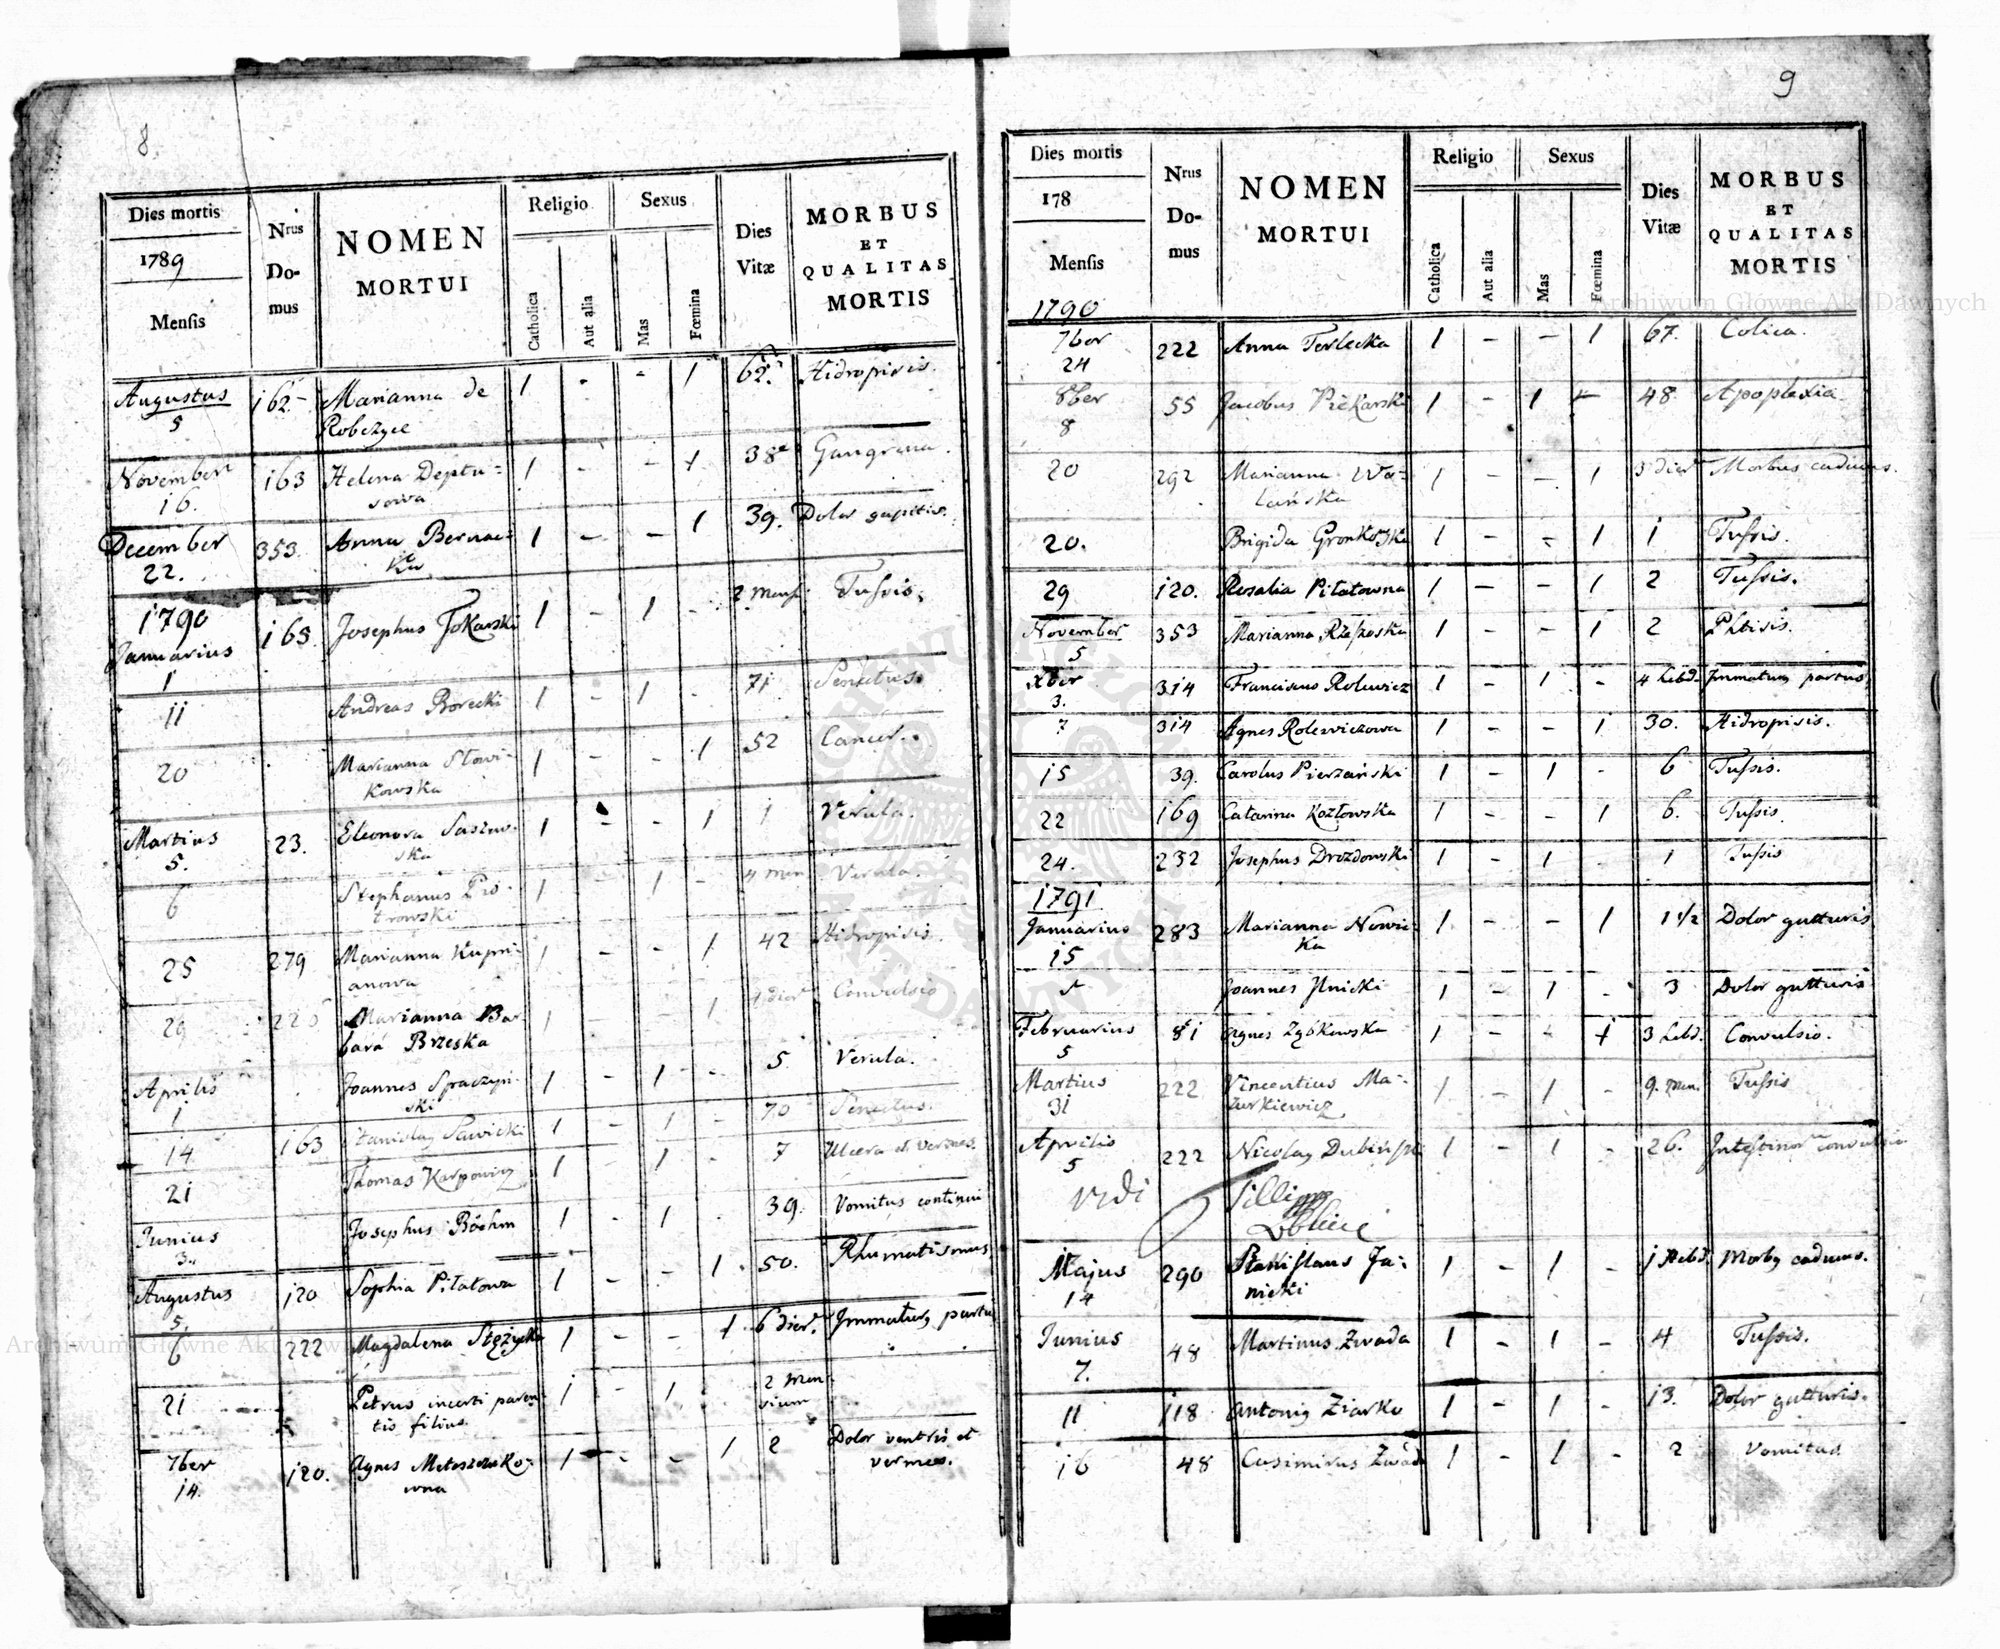 8.
Dies mortis
1789
Mensis
Nrus Domus
NOMEN MORTUI
Religio
Catholica
Aut alia
Sexus
Mas
Fœmina
Dies Vitæ
MORBUS ET QUALITAS MORTIS
Augustus 162. Marianna de 1 - - 1 62. Hidropisis.
5 Robczyce
November 163 Helena Deptu= 1 - - 1 38 Gangrena.
16. sowa
December 353. Anna Bernac= 1 - - 1 39. Dolor capitis.
22. ka
1790
Januarius 165. Josephus Tokarski 1 - 1 - 2 mens. Tussis.
1
11 Andreas Borecki 1 - 1 - 71 Senectus.
20 Marianna Słowi- 1 - - 1 52 Cancer.
kowska
Martius 23. Eleonora Saszew- 1 - - 1 1 Verula.
5. ska
6 Stephanus Pio- 1 - 1 - 4 men Verula.
trowski
25 279 Marianna Kupri- 1 - - 1 42 Hidropisis.
anowa
29 Marianna Bar- 1 - - 1 Convulsio
bara Brzeska
Aprilis Joannes Spraczyń- 1 - 1 - 5. Verula.
1 ski
14 163 Stanislaus Sawicki 1 - 1 - 70 Senectus.
21 Thomas Karpowicz 1 - 1 - 7 Ulcera et vermes.
Junius Josephus Böehm 1 - 1 - 39. Vomitus continui
3.
Augustus 120 Sophia Piłatowa 1 - - 1 50. Rhumatismus
5.
6 222 Magdalena Stężycka 1 - - 1 6 dier. Immaturus partus
21 Petrus incerti paren- 1 - 1 2 men-
tis filius. sium
7ber 120. Agnes Matoszewko- 1 - - 1 2 Dolor ventris et
14. wna vermes.
9
Dies mortis
178
Mensis
1790
Nrus Domus
NOMEN MORTUI
Religio
Catholica
Aut alia
Sexus
Mas
Fœmina
Dies Vitæ
MORBUS ET QUALITAS MORTIS
7ber 222 Anna Terlecka 1 - - 1 67. Colica.
24
8ber 55 Jacobus Piekarski 1 - 1 - 48 Apoplexia
8
20 292 Marianna Wo- 1 - - 1 3 dier Morbus caducus.
lańska
20. Brigida Gronkowska 1 - - 1 1 Tussis.
29 120. Rosalia Piłatowna 1 - - 1 2 Tussis.
November 353 Marianna Rzeszoska 1 - - 1 2 Phtisis.
5
Xber 314 Franciscus Rolewicz 1 - 1 - 4 hebd. Immaturus partus
3.
7 314 Agnes Rolewiczowa 1 - - 1 30. Hidropisis.
15 39. Carolus Pierzański 1 - 1 - 6 Tussis.
22 169 Catarina Kozłowska 1 - - 1 6. Tussis.
24. 232 Josephus Drozdowski 1 - 1 - 1 Tussis
1791.
Januarius 283 Marianna Nowic- 1 - - 1 1 1/2 Dolor gutturis
15 ka
Joannes Ilnicki 1 - 1 - 3 Dolor gutturis
Februarius 81 Agnes Ząbkowska 1 - - 1 3 hebd. Convulsio.
5
Martius 222 Vincentius Ma- 1 - 1 - 9. men. Tussis
31 zurkiewicz
Aprilis 222 Nicolaus Dubiński 1 - 1 - 26. Intestinor convulsio
5
vidi
Majus 290 Stanislaus Ja- 1 - 1 - 1 Hebd. Morbus caducus.
14 nicki
Junius 48 Martinus Zwada 1 - 1 - 4 Tussis.
7.
11 118 Antonius Ziarko 1 - 1 - 13. Dolor gutturis.
16 48 Casimirus Zwada 1 - 1 - 2 Vomitus
Archiwum Główne Akt Dawnych
Archiwum Główne Akt Dawnych